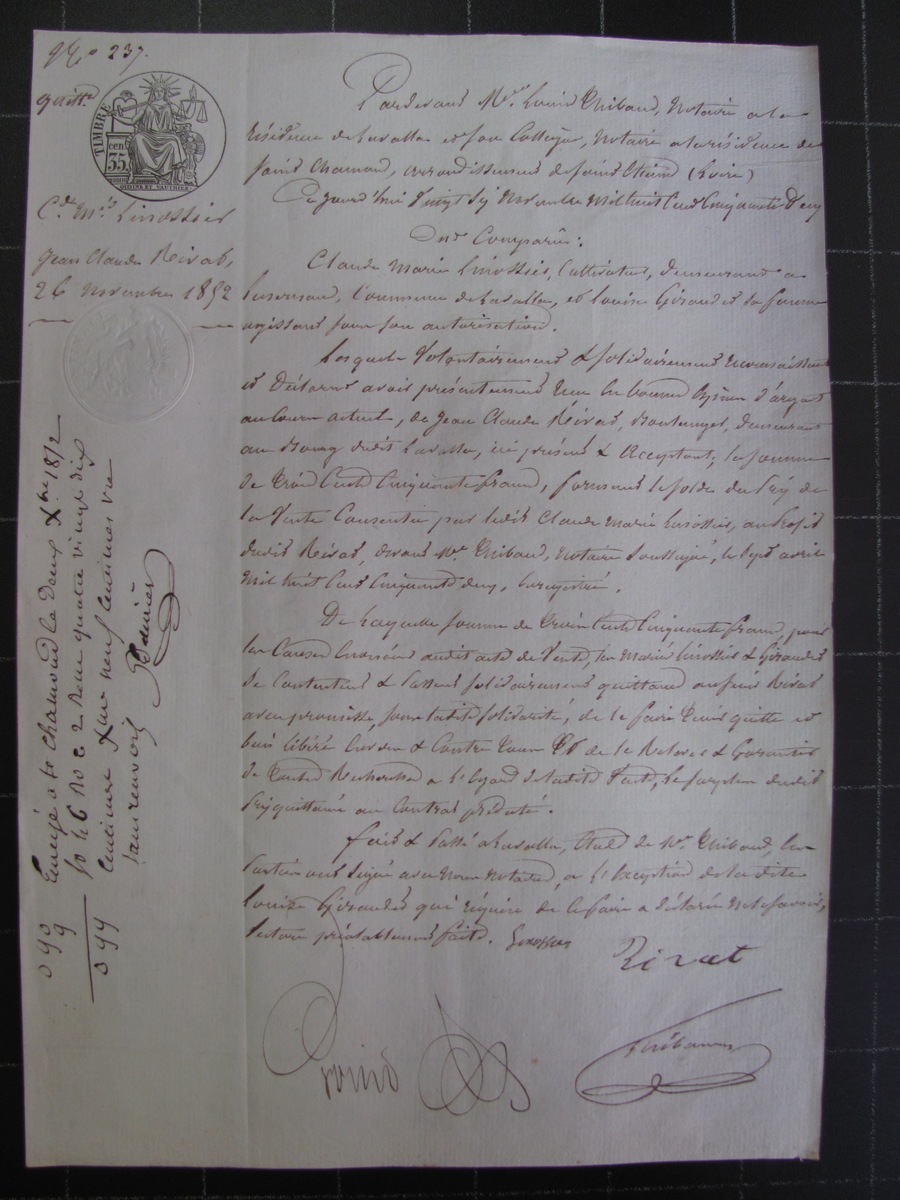 No 237.
quitt.ce
TIMBRE
cen
35
OUDINE ET VAUTHIER
Cde Mie Linossier
Jean Claude Rivat,
26 Novembre 1852
Pardevant Me. Louis Thibaud, Notaire a la
résidence de Lavalla et son Collègue, Notaire a la résidence de
Saint Chamond, arrondissement de Saint Etienne (Loire)
Ce jourd'hui Vingt Six Novembre Mil huit Cent Cinquante Deux
Ont Comparu:
Claude Marie Linossier, Cultivateur, demeurant a
Commune de Lavalla, et Louise Giraudet sa femme
agissant sous son autorisation.
Lesquels Volontairement & solidairement reconnaissent
et déclarent avoir présentement reçu en bonnes Espèces d'argent
au Cours actuel, de Jean Claude Rivat, Boulanger, demeurant
au Bourg dudit Lavalla, ici présent & acceptant, la somme
de Trois Cent Cinquante francs, formant le solde du Prix de
la Vente Consentie par ledit Claude Marie Linossier, au Profit
dudit Rivat, devant Me Thibaud, Notaire soussigné, le Sept avril
Mil huit Cent Cinquante deux, Enregistré.
De laquelle somme de Trois Cent Cinquante francs, pour
les Causes Enoncées audit acte de Vente, les Mariés Linossier & Giraudet
se Contentent & Passent solidairement quittance au sieur Rivat
avec promesse, sous ladite solidarité, de le faire Tenir quitte et
bien libéré Envers & Contre Tous et de le Relever & Garantir
de Toutes Recherches a l'égard de ladite Vente, le surplus dudit
Prix quittancé au Contrat précité.
fait & Passé a Lavalla, Etude de Me Thibaud, les
Parties ont signé avec Nous Notaires, a l'Exception de la dite
Louise Giraudet qui requise de le faire a déclaré Ne le savoir,
Lecture préalablement faite. Linossier
Rivat
Thibaud
Enregé a St Chamond le Deux Xbre 1852
fo 46 Ro c 2 Reçu quatre vingt dix
centimes Xme neuf centimes
sans renvoi
0 90
9
0 99